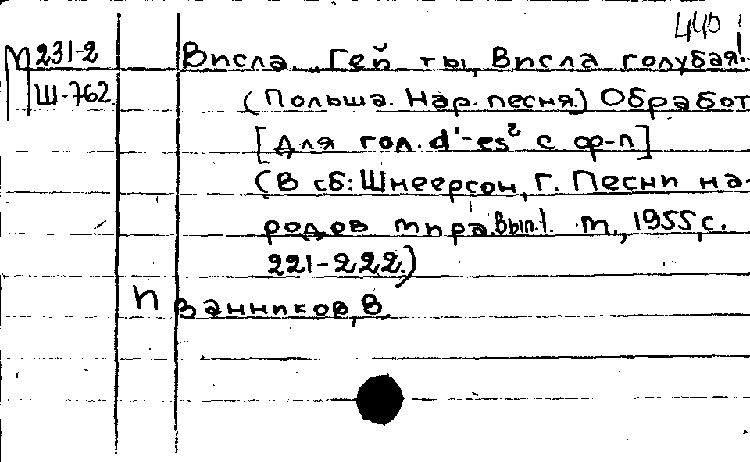 440
М 231-2
Ш-762
Висла. „Гей ты, Висла голубая!
(Польша. Нар. песня) Обработ
[Для гол. d'-es² с ф-п]
(В сб: Шнеерсон, Г. Песни на-
родов мира. Вып.1. М., 1955, с.
221-222.)
п Ванников, В.